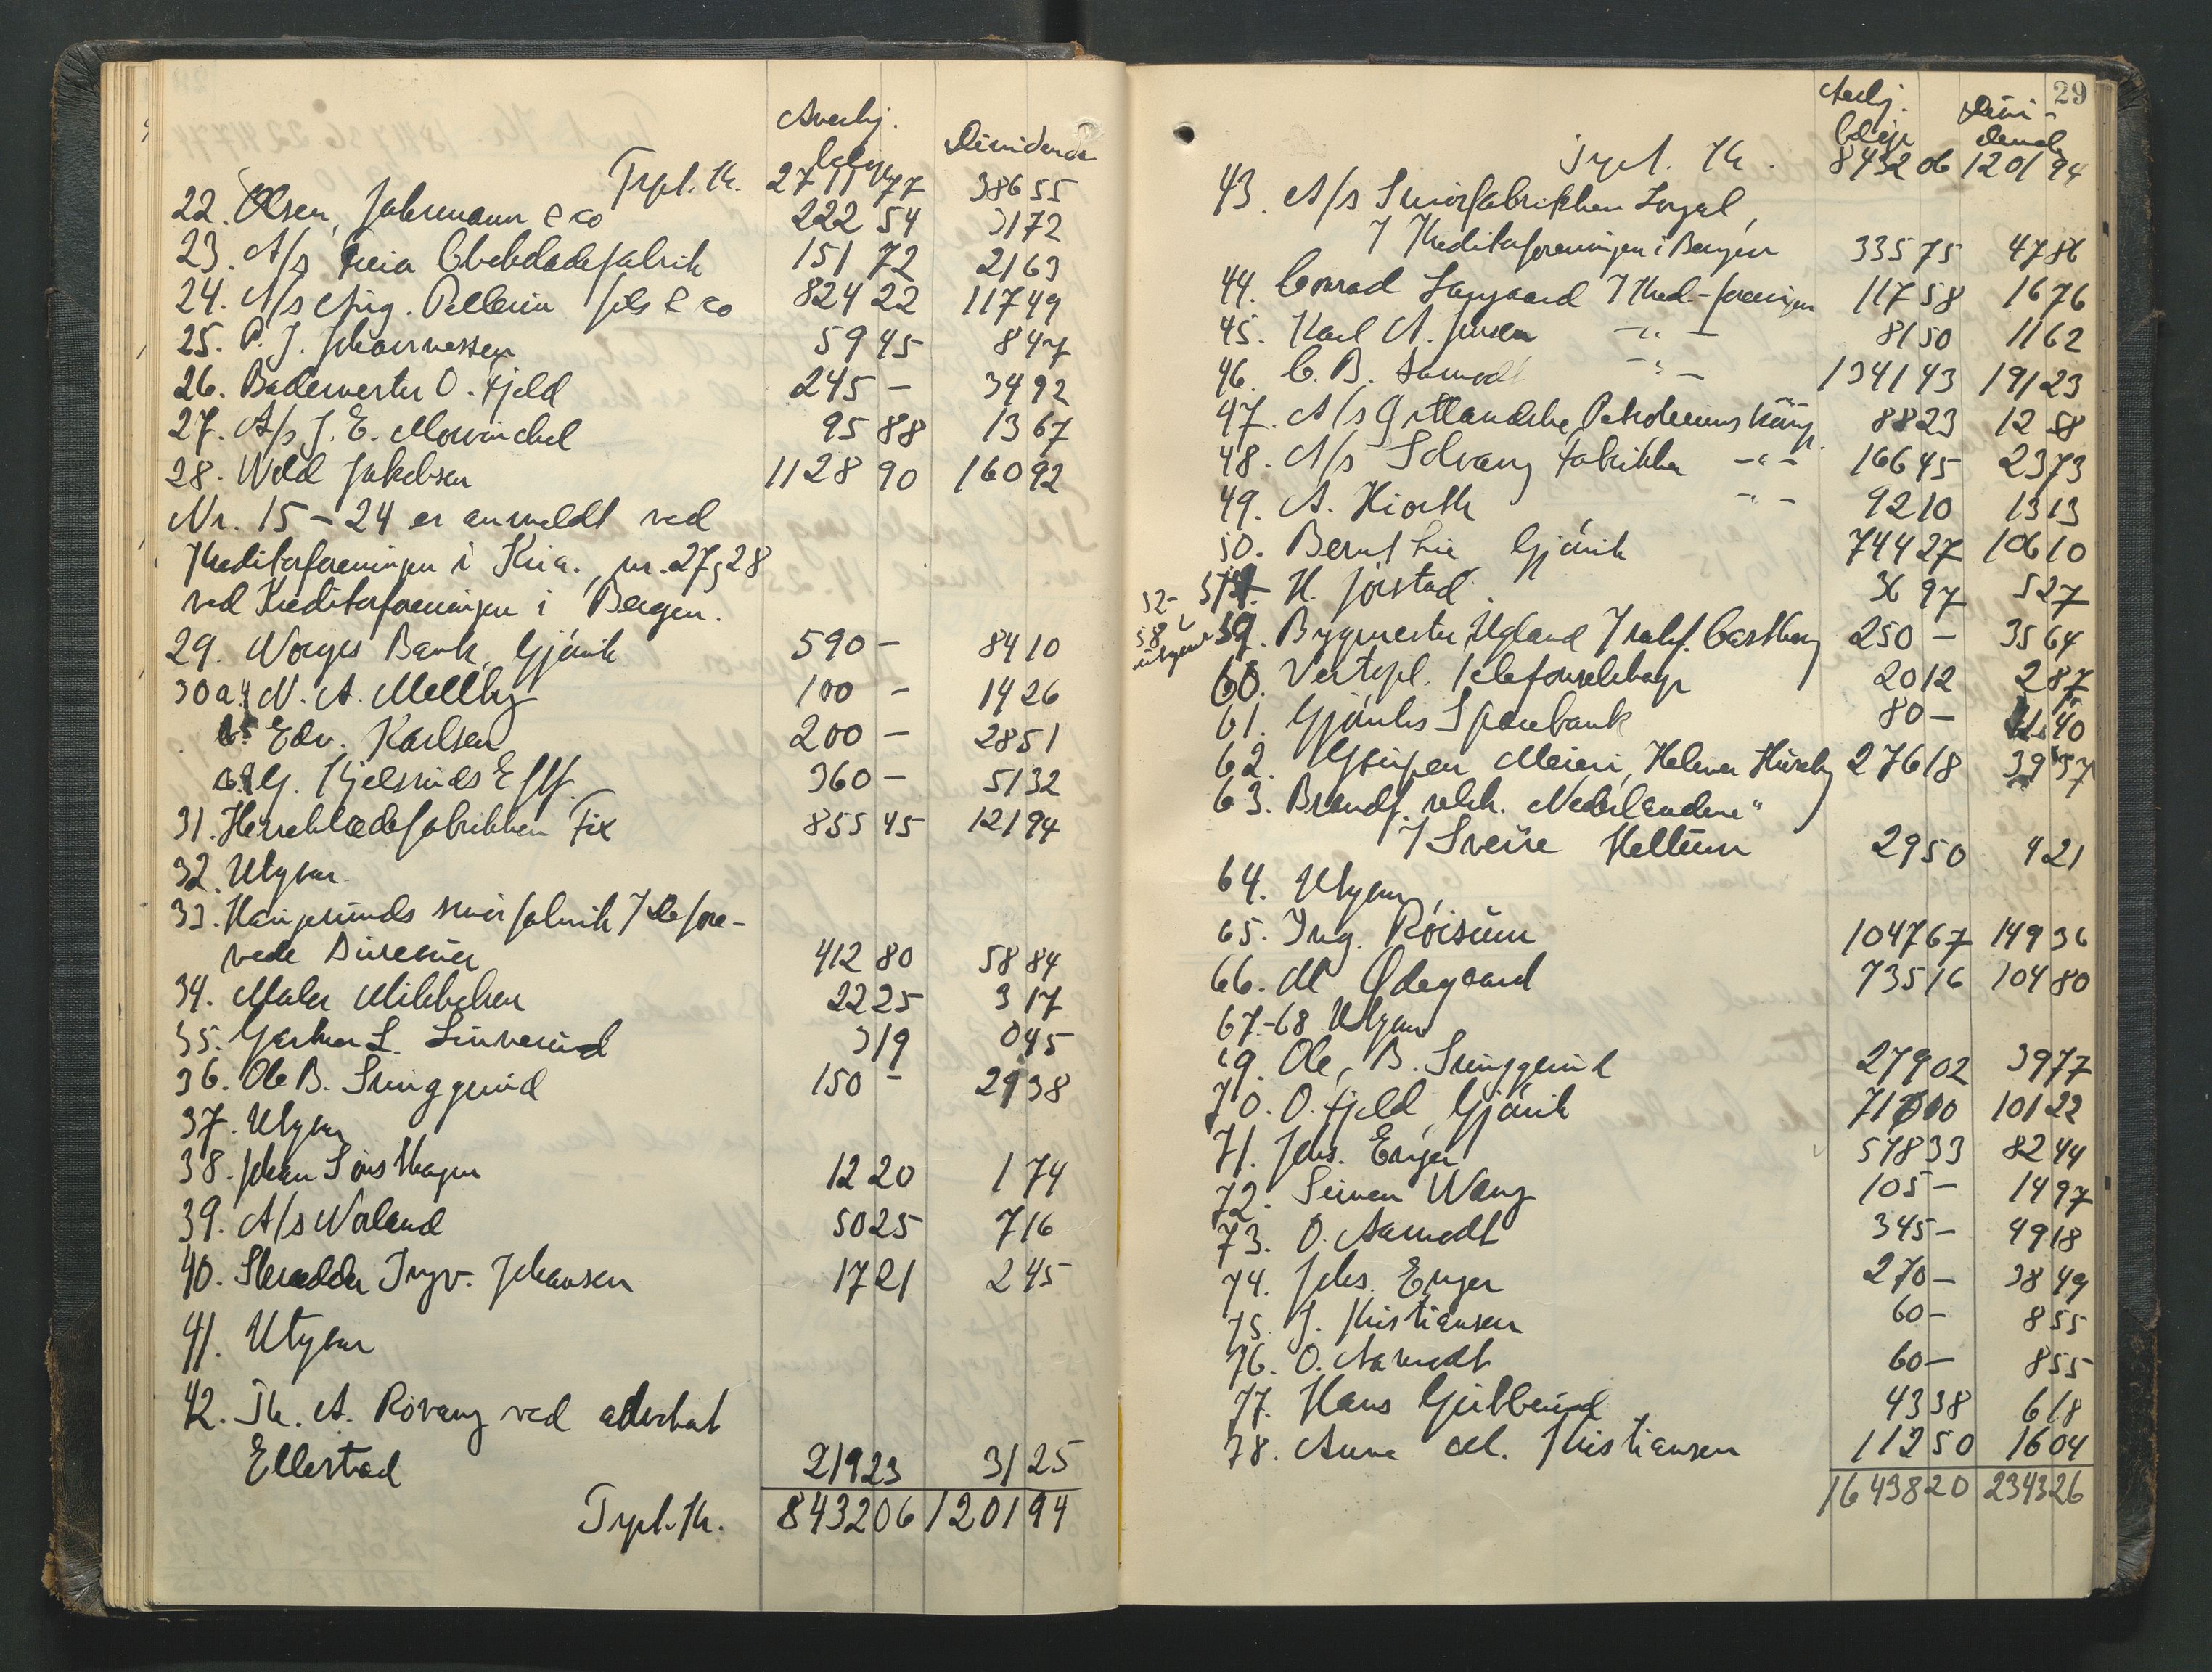 Anerkj. beløp Dividende
Trpt. Kr. 2711 77 386 55
22. Olsen, Jahrmann & Co 222 54 31 72
23. A/s Freia Chokoladefabrik 151 72 21 63
24. A/s Aug. Pellerin fils & Co 824 22 117 49
25. P. J. Johannessen 59 45 8 47
26. Bademester O. Fjeld 245 - 34 92
27. A/s J. E. Mowinckel 95 88 13 67
28. Wold Jakobsen 1128 90 160 92
Nr. 15-24 er anmeldt ved
Kreditorforeningen i Kria., nr. 27 & 28
ved Kreditorforeningen i Bergen.
29. Norges Bank, Gjövik 590 - 84 10
30 a. N. A. Mellby 100 - 14 26
b. Edv. Karlsen 200 - 28 51
c. G. Kjelsruds Eftf. 360 - 51 32
31. Herreklædefabrikken Fix 855 45 121 94
32. Utgaar
33. smörfabrik
412 80 58 84
34. Maler Mikkelsen 22 25 3 17
35. Gartner L. Linnerud 3 19 0 45
36. Ole B. 150 - 21 38
37. Utgaar
38. Johan 12 20 1 74
39. A/s Norland 50 25 7 16
40. Skrædder Ingv. Johansen 17 21 2 45
41. Utgaar
42. Th. A. Rövang ved advokat
Ellestad 219 23 31 25
Trpt. Kr. 8432 06 1201 94
29
Anerkj. beløp Dividende
Trpt. Kr. 8432 06 1201 94
43. A/s Smörfabrikken Loyal,
/ Kreditorforeningen i Bergen 335 75 47 86
44. Conrad Langaard / Kred.-foreningen 117 58 16 76
45. Karl A. Jensen -"- 81 50 11 62
46. C. B. Aamodt -"- 1341 43 191 23
47. A/s Östlandske Petroleumskomp. 88 23 12 58
48. A/s Solvang Fabrikker -"- 166 45 23 73
49. A. Hiorth -"- 92 10 13 13
50. Bernt Lie Gjövik 744 27 106 10
51. H. Jörstad 36 97 5 27
52-58 utgaar
59. Bygmester Ugland / sakf. Castberg 250 - 35 64
60. Vestopl. Telefonselskap 20 12 2 87
61. Gjöviks Sparebank 80 - 11 40
62. Meieri, 276 18 39 37
63. Brandf. selsk. "Nederlandene"
/ Sverre Heltum 29 50 4 21
64. Utgaar
65. Ing. Röisum 1047 67 149 36
66. M. Ödegaard 735 16 104 80
67-68 Utgaar
69. Ole B. 279 02 39 77
70. O. Fjeld, Gjövik 710 00 101 22
71. Johs. Enger 578 33 82 44
72. Simen Wang 105 - 14 97
73. O. Aamodt 345 - 49 18
74. Johs. Enger 270 - 38 49
75. J. Kristiansen 60 - 8 55
76. O. Aamodt 60 - 8 55
77. Hans Gulbrand 43 38 6 18
78. Anne Kristiansen 112 50 16 04
16438 20 2343 26